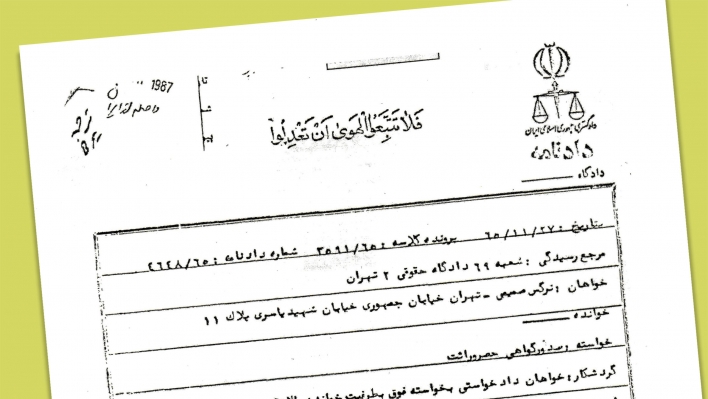 1987
فَلا تَتَّبِعُوا الْهَوىٰ اَنْ تَعْدِلُوا
دادگستری جمهوری اسلامی ایران
دادنامه
دادگاه
بتاریخ : ۶۵/۱۱/۲۷ پرونده کلاسه : ۳۵۹۱/۶۵ شماره دادنامه : ۲۶۲۸/۶۵
مرجع رسیدگی : شعبه ۶۹ دادگاه حقوقی ۲ تهران
خواهان : نرگس صمیمی - تهران خیابان جمهوری خیابان شهید یاسری پلاک ۱۱
خوانده
خواسته : صدور گواهی حصر وراثت
گردشکار : خواهان دادخواستی بخواسته فوق بطرفیت